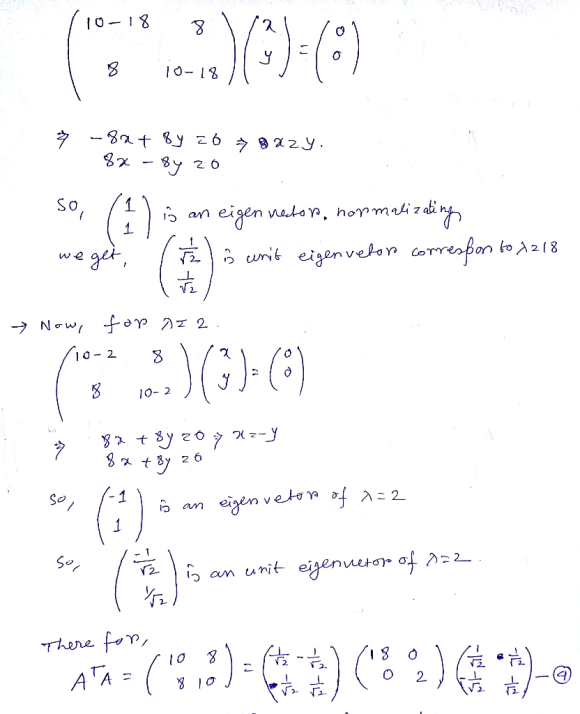 ( 10-18 8 ) ( x ) = ( 0 )
( 8 10-18 ) ( y ) ( 0 )
⇒ -8x + 8y = 0 ⇒ x = y.
8x - 8y = 0
So, ( 1 1 ) is an eigen vetor, normalizating
we get, ( 1/√2 1/√2 ) is unit eigenvetor correspon to λ=18
→ Now, for λ = 2.
( 10-2 8 ) ( x ) = ( 0 )
( 8 10-2 ) ( y ) ( 0 )
⇒ 8x + 8y = 0 ⇒ x = -y
8x + 8y = 0
So, ( -1 1 ) is an eigen vetor of λ = 2
So, ( -1/√2 1/√2 ) is an unit eigenvetor of λ = 2.
There for,
AᵀA = ( 10 8 ; 8 10 ) = ( 1/√2 -1/√2 ; 1/√2 1/√2 ) ( 18 0 ; 0 2 ) ( 1/√2 1/√2 ; -1/√2 1/√2 ) - ④